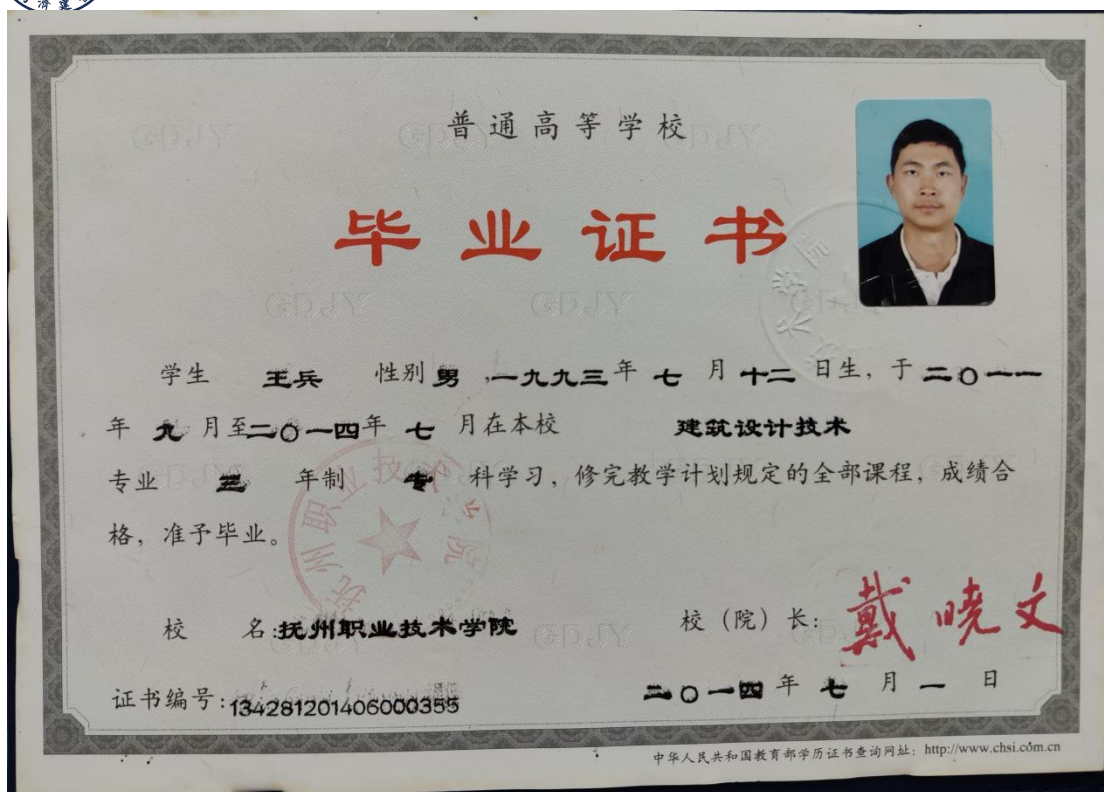 普通高等学校
毕业证书
学生 王兵 性别男,一九九三年七月十二日生，于二〇一一
年九月至二〇一四年七月在本校 建筑设计技术
专业 三 年制 专 科学习，修完教学计划规定的全部课程，成绩合
格，准予毕业。
抚州职业技术学院
校 名:抚州职业技术学院 校（院）长：戴晓文
证书编号:134281201406000355 二〇一四年七月一日
中华人民共和国教育部学历证书查询网址：http://www.chsi.com.cn